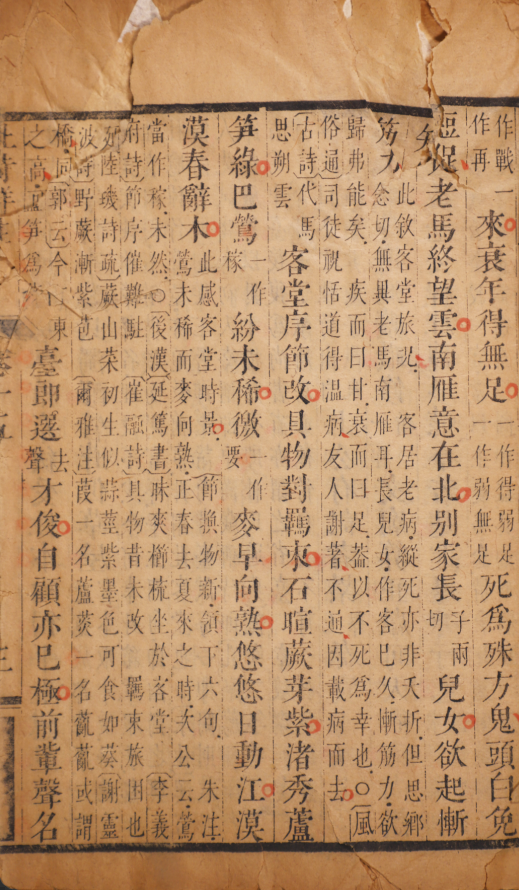 作戰一
作再
來衰年得無足
一作得弱足
一作弱無足
死爲殊方鬼頭白免
短促老馬終望雲南雁意在北别家長
子兩
切
兒女欲起慚
筋力
此敘客堂旅況 客居老病縱死亦非夭折但思鄉
念切無異老馬南雁耳長兒女作客已久慚筋力欲
歸弗能矣 疾而曰甘衰而曰足葢以不死爲幸也○〔風
俗通〕司徒祝恬道得溫病友人謝著不通因載病而去
〔古詩〕代馬
思朔雲
客堂序節改具物對羈束石暄蕨芽紫渚秀蘆
笋綠巴鶯
一作
稼
紛未稀徼
一作
要
麥早向熟悠悠日動江漠
漠春辭木
此感客堂時景 節換物新領下六句 朱注
鶯未稀而麥向熟正春去夏來之時夫公云鶯
當作稼未然○〔後漢延篤書〕昧爽櫛梳坐於客堂〔李義
府詩〕節序催難駐〔崔融詩〕具物昔未改 羈束旅困也
陸璣詩疏〕蕨山菜初生似蒜莖紫墨色可食如葵〔謝靈
波詩〕野蕨漸紫苞〔爾雅注〕葭一名蘆菼一名薍薍或謂
橋同郭云今江東
之高 笋爲
臺郎選
去
聲
才俊自顧亦已極前輩聲名